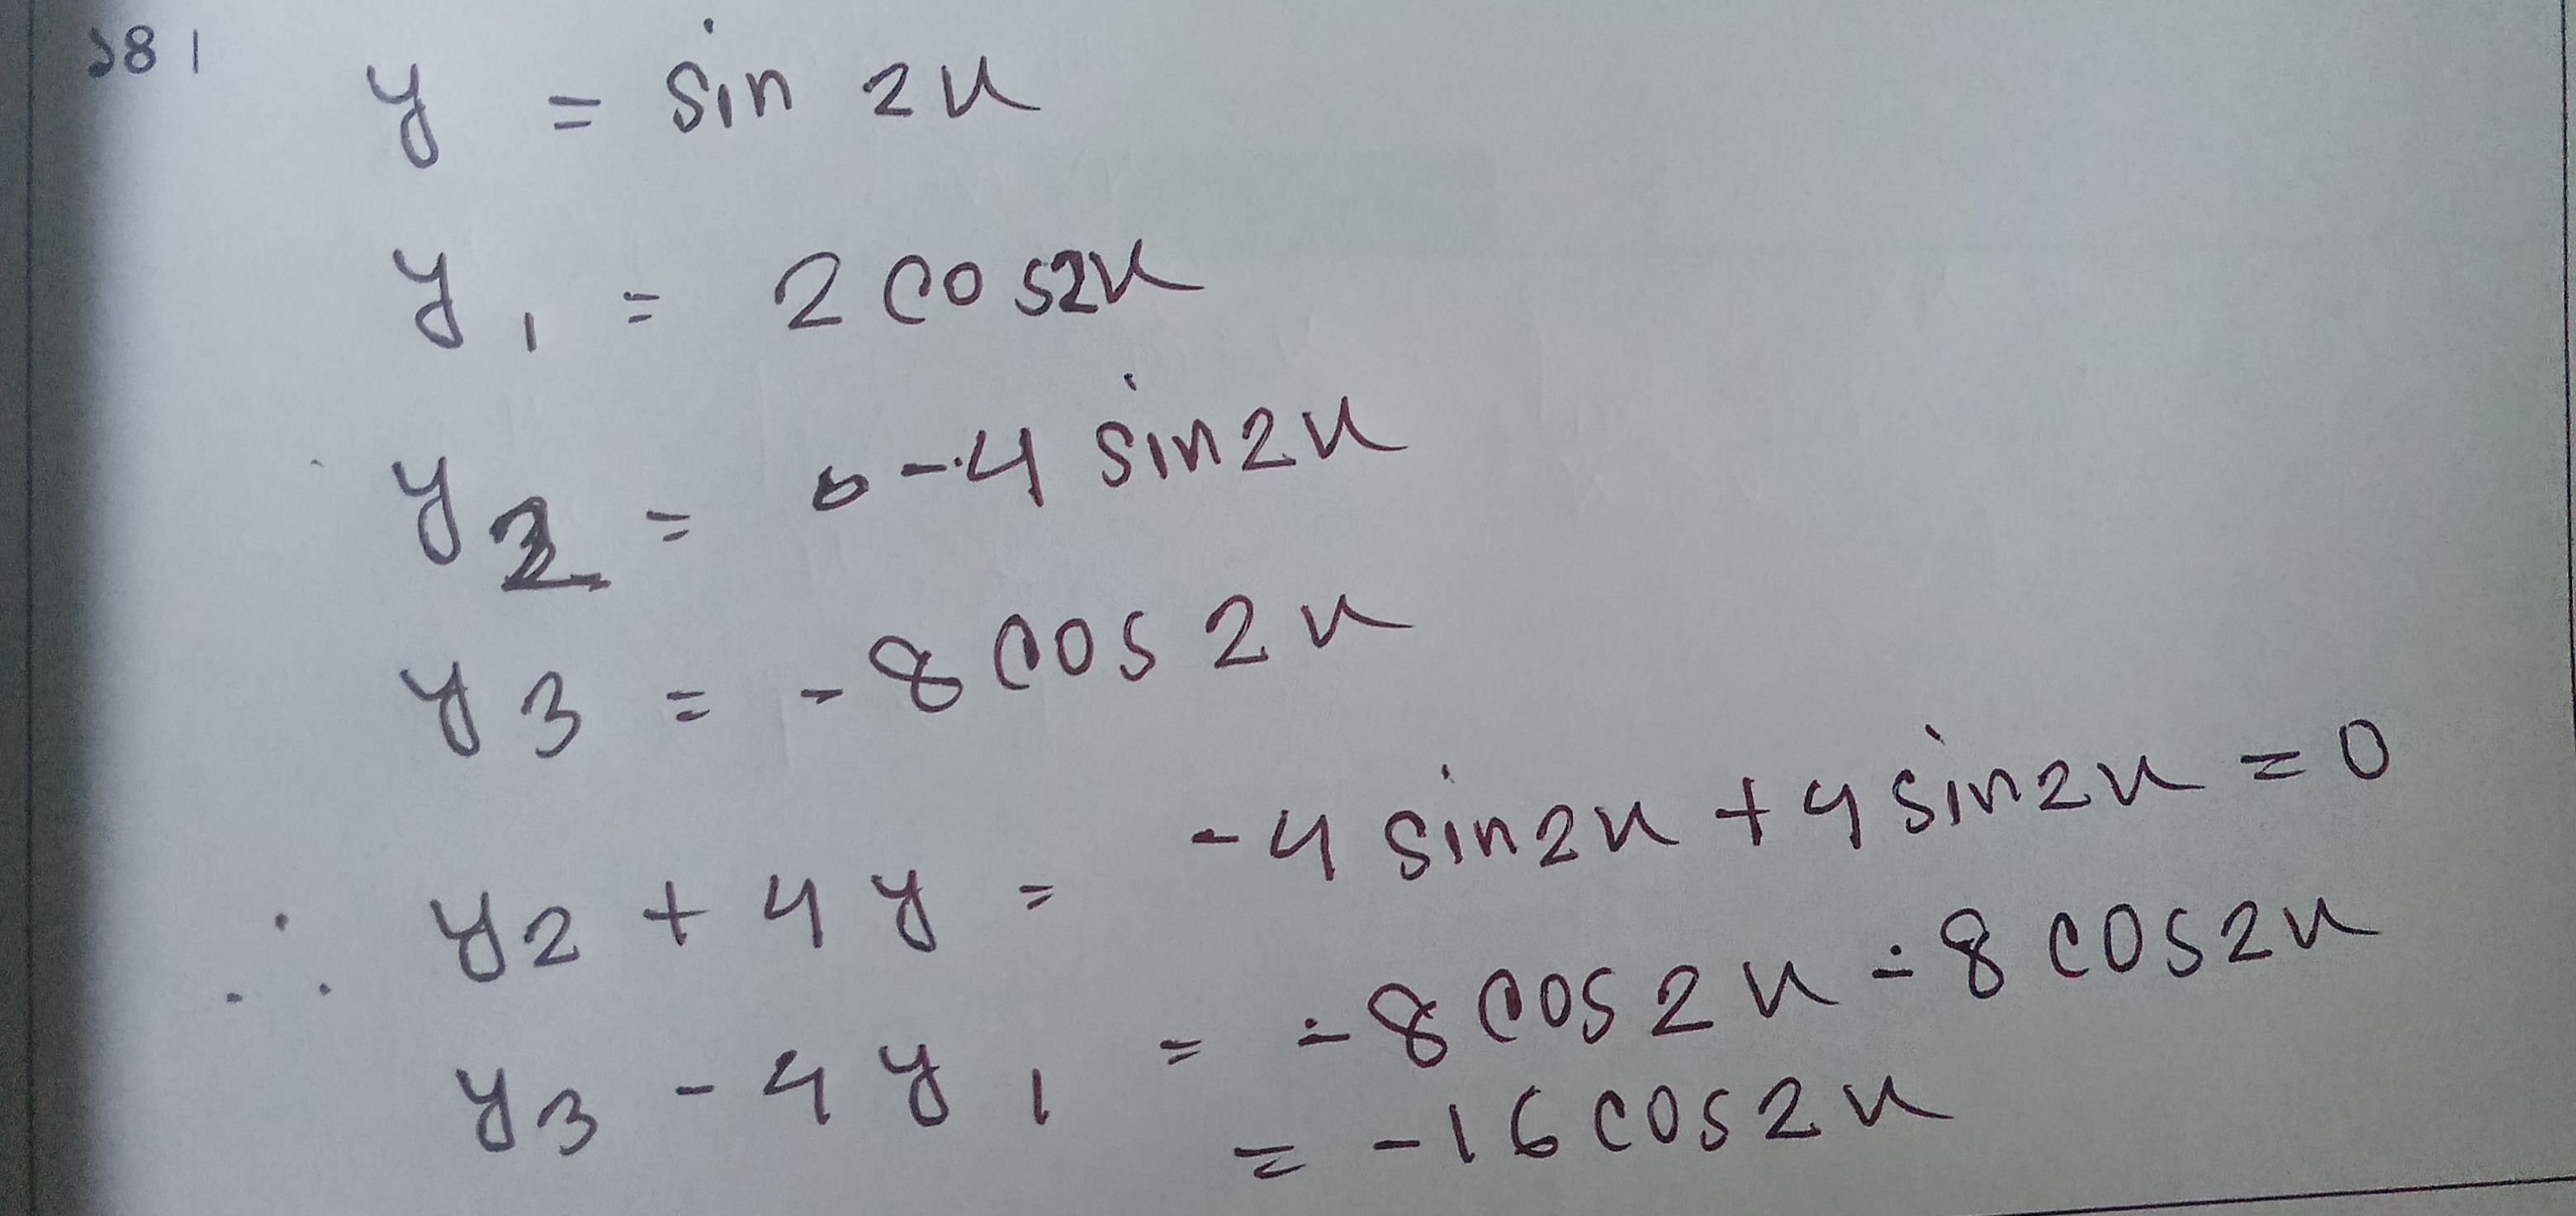 ২৪।
y = sin 2x
y₁ = 2 cos2x
y₂ = -4 sin2x
y₃ = -8 cos 2x
∴ y₂ + 4y = -4 sin2x + 4 sin2x = 0
y₃ - 4y₁ = -8 cos 2x - 8 cos2x
= -16 cos2x